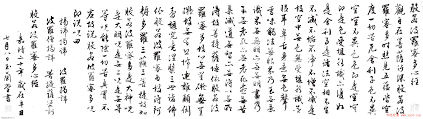 般若波羅蜜多心經
觀自在菩薩行深般若波
羅蜜多時照見五蘊皆空
度一切苦厄舍利子色不異
空空不異色色即是空空
即是色受想行識亦復如
是舍利子是諸法空相不生
不滅不垢不淨不增不減
是故空中無色無受想行識
無眼耳鼻舌身意無色聲
香味觸法無眼界乃至無意
識界無無明亦無無明盡乃
至無老死亦無老死盡無苦
集滅道無智亦無得以無所得故
菩提薩埵依般若波
羅蜜多故心無罣礙無罣
礙故無有恐怖遠離顛倒
夢想究竟涅槃三世諸佛
依般若波羅蜜多故得阿
耨多羅三藐三菩提故知般
若波羅蜜多是大神咒
是大明咒是無上咒是無等
等咒能除一切苦真實不虛
故說般若波羅蜜多咒
即說咒曰
揭諦揭諦 波羅揭諦
波羅僧揭諦 菩提薩婆訶
般若波羅蜜多心經